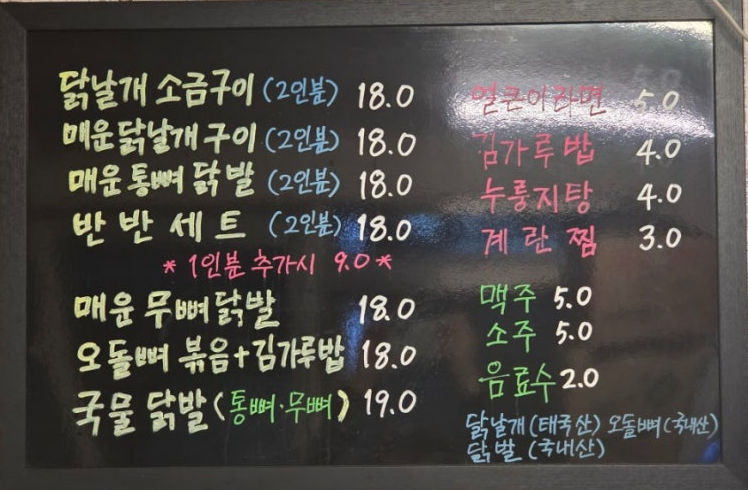 닭날개 소금구이 (2인분) 18.0
매운닭날개구이 (2인분) 18.0
매운통뼈닭발 (2인분) 18.0
반반세트 (2인분) 18.0
* 1인분 추가시 9.0 *
매운 무뼈닭발 18.0
오돌뼈 볶음+김가루밥 18.0
국물 닭발 (통뼈·무뼈) 19.0
얼큰이라면 5.0
김가루밥 4.0
누룽지탕 4.0
계란찜 3.0
맥주 5.0
소주 5.0
음료수 2.0
닭날개 (태국산) 오돌뼈 (국내산)
닭발 (국내산)